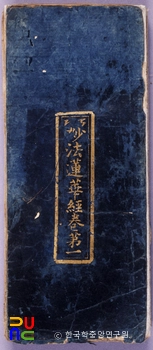 妙法蓮華經卷第一
PUMC
ⓒ한국학중앙연구원